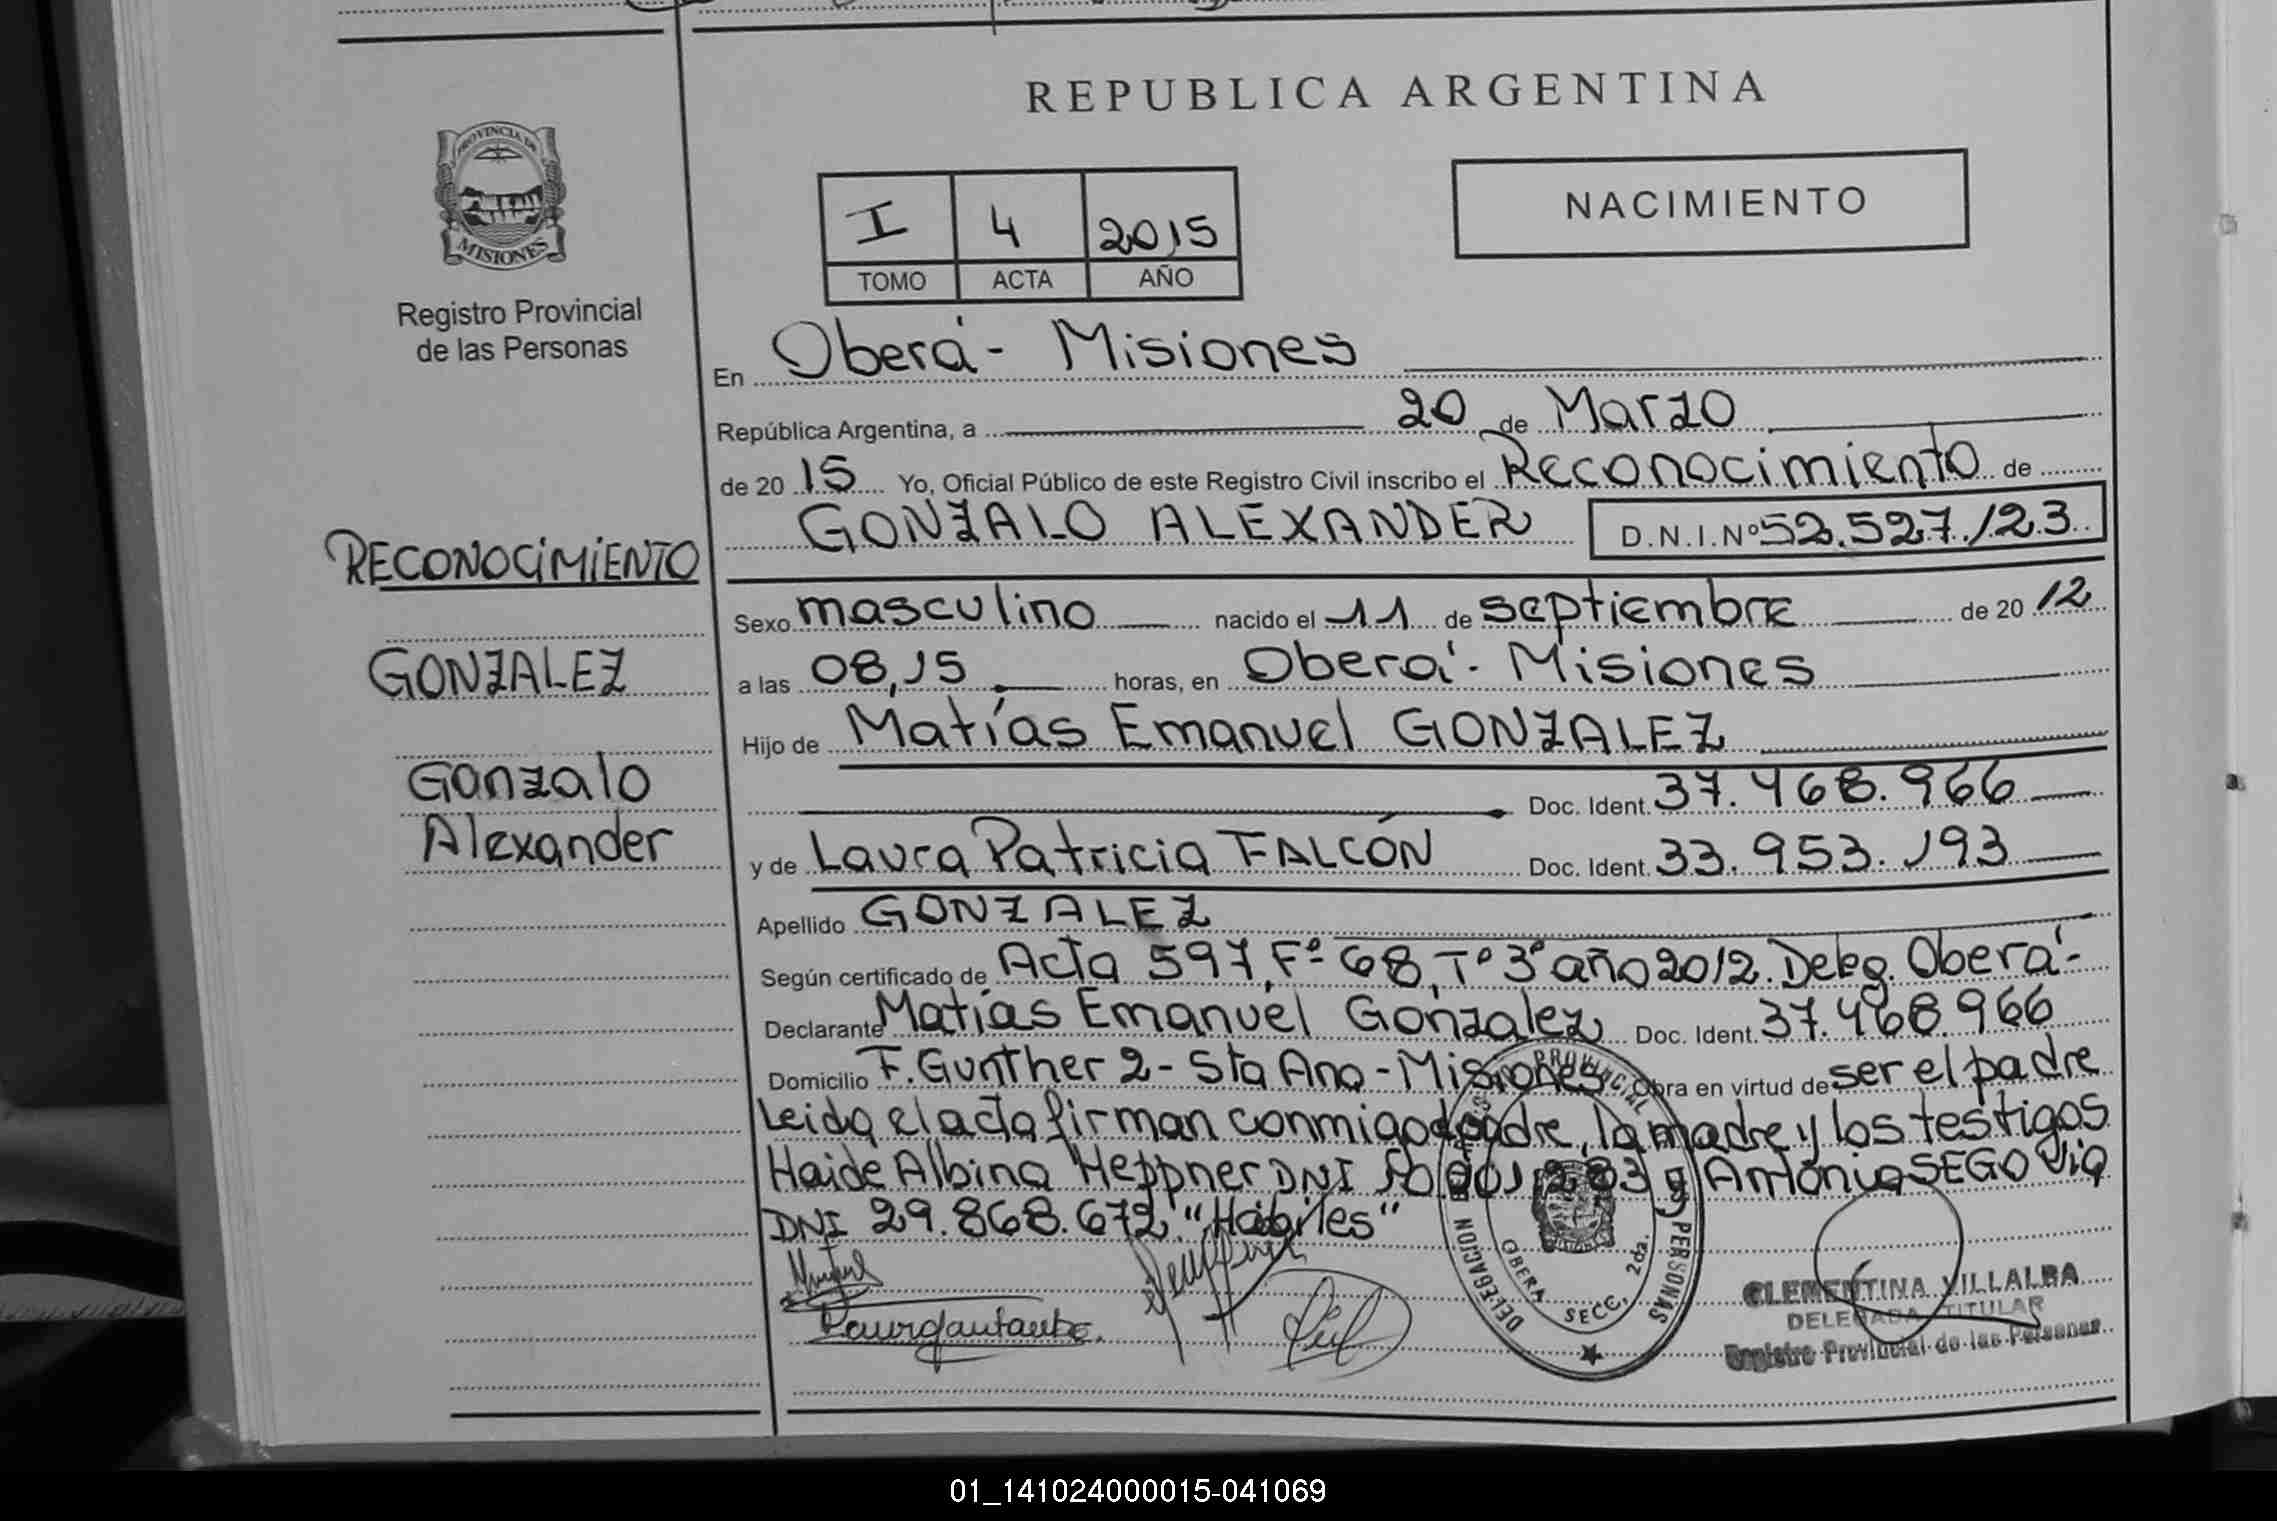 REPUBLICA ARGENTINA
PROVINCIA DE
MISIONES
Registro Provincial
de las Personas
I 4 2015
TOMO ACTA AÑO
NACIMIENTO
En Oberá - Misiones
República Argentina, a 20 de Marzo
de 20 15 Yo, Oficial Público de este Registro Civil inscribo el Reconocimiento de
GONZALO ALEXANDER D.N.I.Nº 52.527.123
RECONOCIMIENTO
GONZALEZ
Gonzalo
Alexander
Sexo masculino nacido el 11 de septiembre de 20 12
a las 08,15 horas, en Oberá - Misiones
Hijo de Matías Emanuel GONZALEZ
Doc. Ident. 37.468.966
y de Laura Patricia FALCÓN Doc. Ident. 33.953.193
Apellido GONZALEZ
Según certificado de Acta 597, Fº 68, Tº 3º año 2012. Deleg. Oberá -
Declarante Matías Emanuel Gonzalez Doc. Ident. 37.468.966
Domicilio F. Gunther 2 - Sta Ana - Misiones Obra en virtud de ser el padre
Leida el acta firman conmigo padre, la madre y los testigos
Haide Albina Heppner DNI y Antonia SEGOVIA
DNI 29.868.672 "Hábiles"
DELEGACION PROVINCIAL PERSONAS
OBERA SECC. 2da.
CLEMENTINA VILLALBA
DELEGADA TITULAR
Registro Provincial de las Personas
01_141024000015-041069